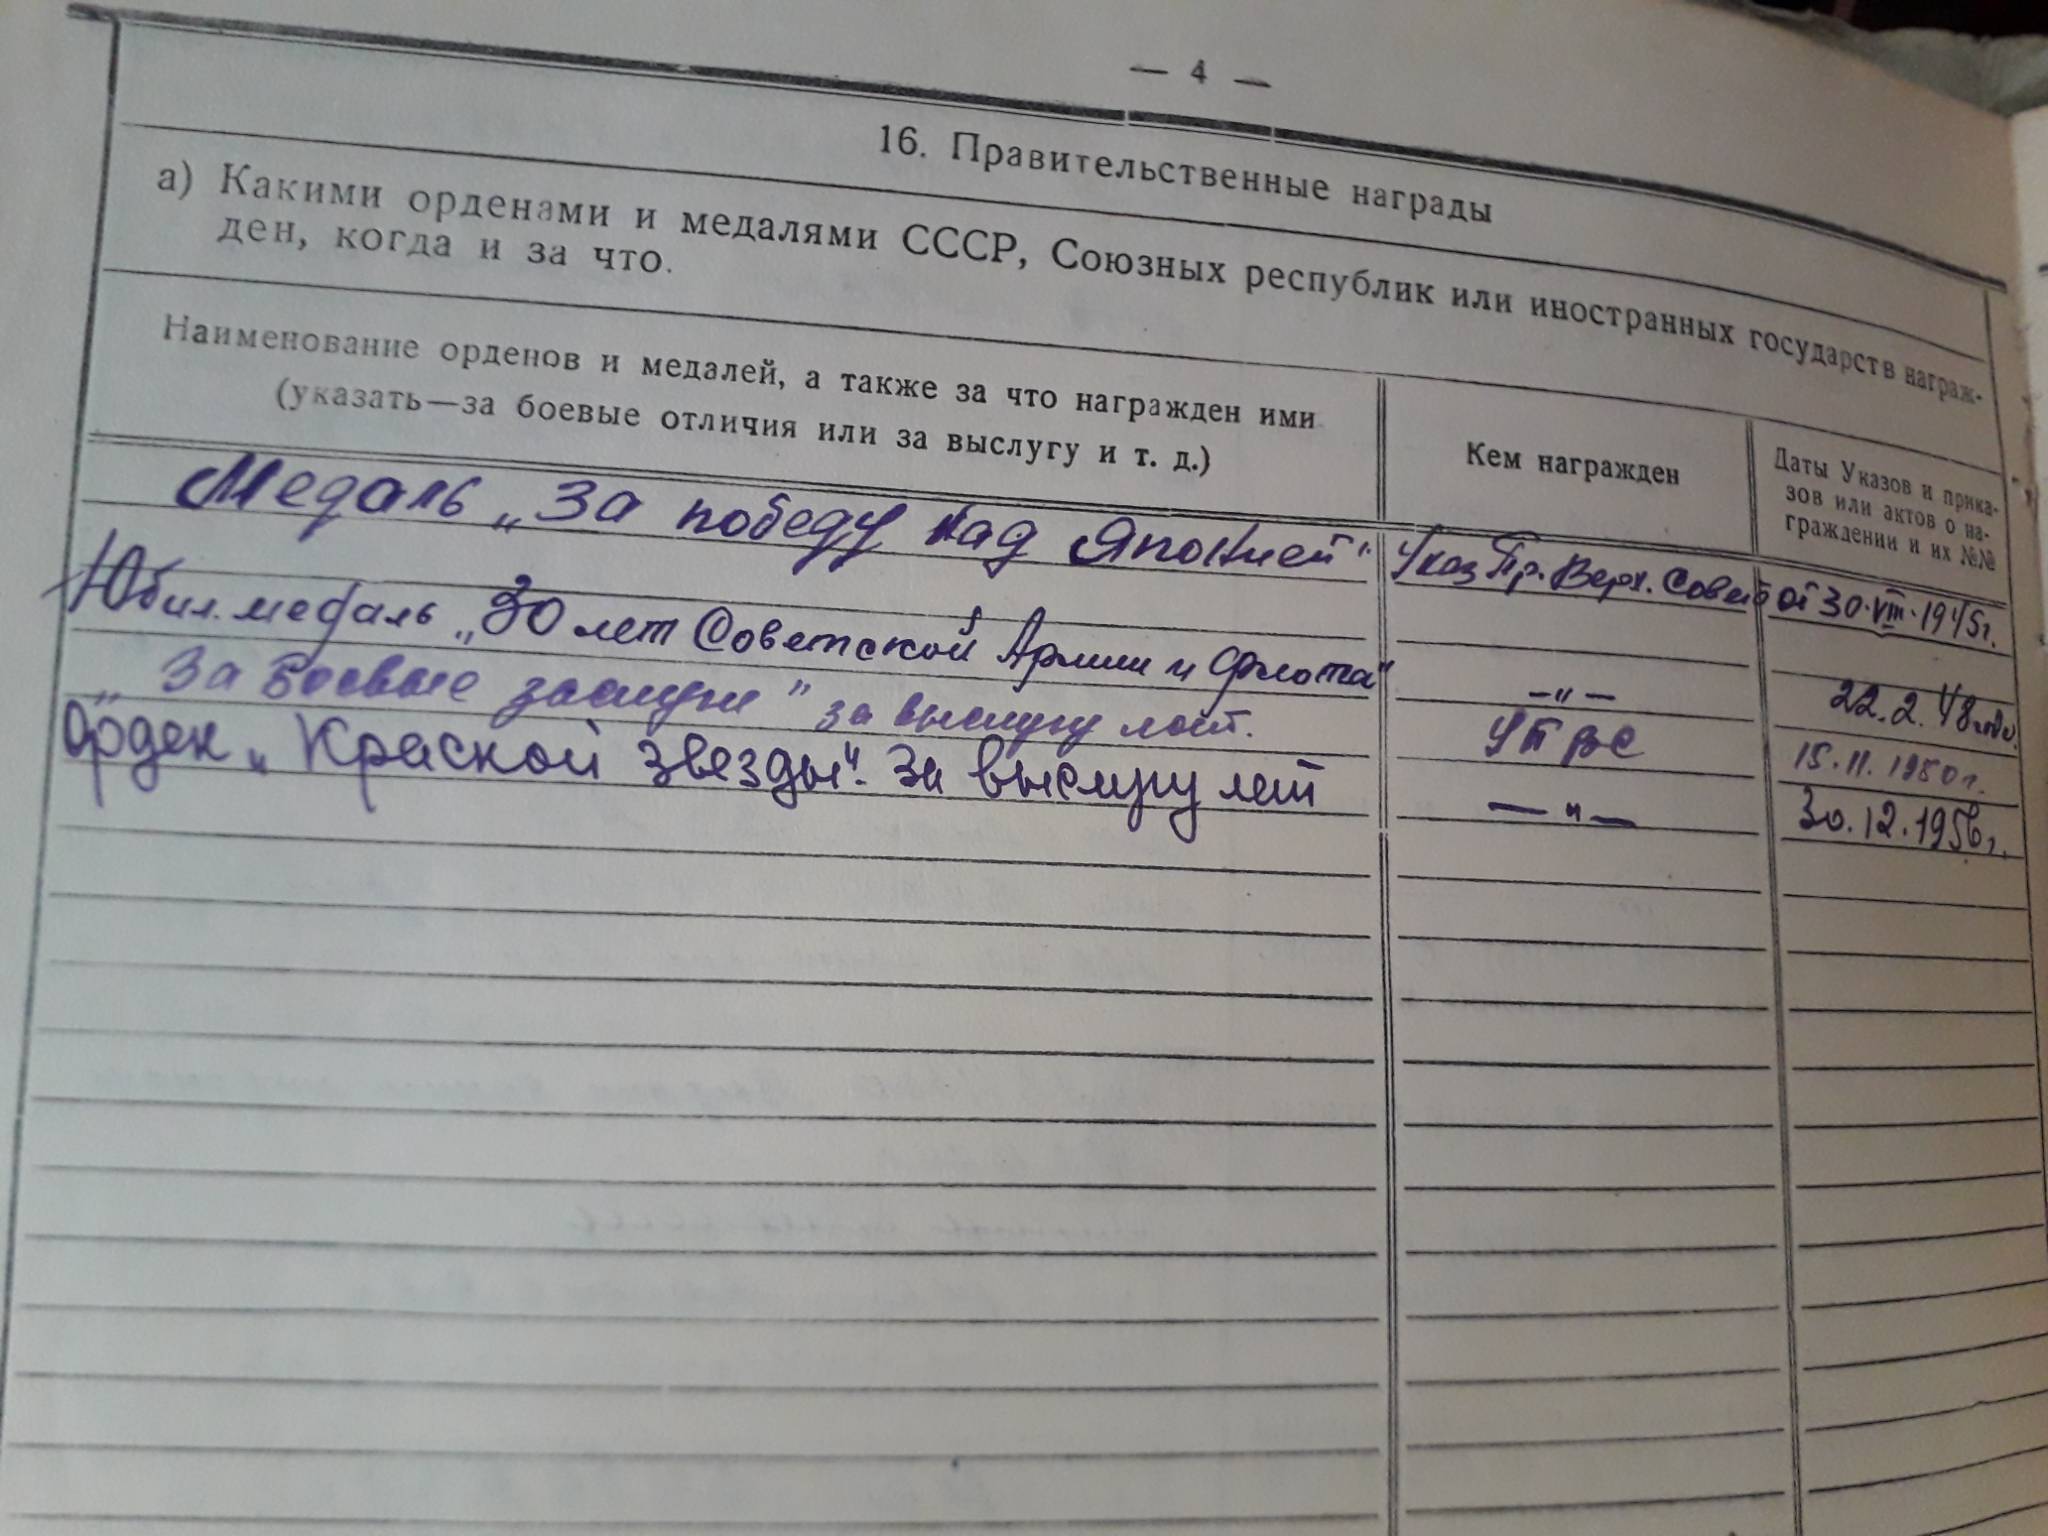 — 4 —
16. Правительственные награды
а) Какими орденами и медалями СССР, Союзных республик или иностранных государств награж-
ден, когда и за что.
Наименование орденов и медалей, а также за что награжден ими
(указать—за боевые отличия или за выслугу и т. д.)
Кем награжден
Даты Указов и прика-
зов или актов о на-
граждении и их №№
Медаль „За победу над Японией" Указ Пр. Верх. Совета от 30.VIII.1945г.
Юбил. медаль „30 лет Советской Армии и Флота" —„— 22.2.48 года.
„За боевые заслуги" за выслугу лет. УПВС 15.11.1950г.
Орден „Красной звезды". За выслугу лет —„— 30.12.1956г.